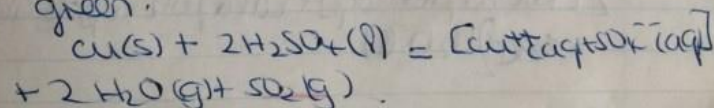 green.
Cu(s) + 2H₂SO₄(l) = [Cu⁺⁺(aq)+SO₄⁻⁻(aq)]
+ 2H₂O(g)+ SO₂(g).